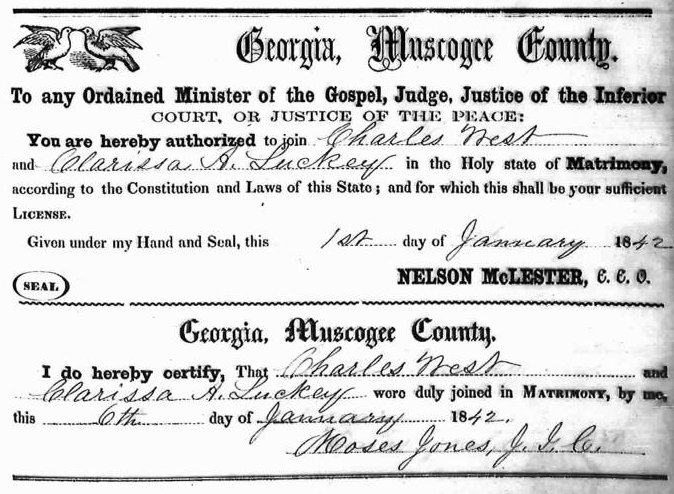 Georgia, Muscogee County.
To any Ordained Minister of the Gospel, Judge, Justice of the Inferior
COURT, OR JUSTICE OF THE PEACE:
You are hereby authorized to join Charles West
and Clarissa A. Luckey in the Holy state of Matrimony,
according to the Constitution and Laws of this State; and for which this shall be your sufficient
LICENSE.
Given under my Hand and Seal, this 1st day of January 1842
SEAL NELSON McLESTER, C. C. O.
Georgia, Muscogee County.
I do hereby certify, That Charles West and
Clarissa A. Luckey were duly joined in MATRIMONY, by me,
this 6th day of January 1842.
Moses Jones, J. I. C.